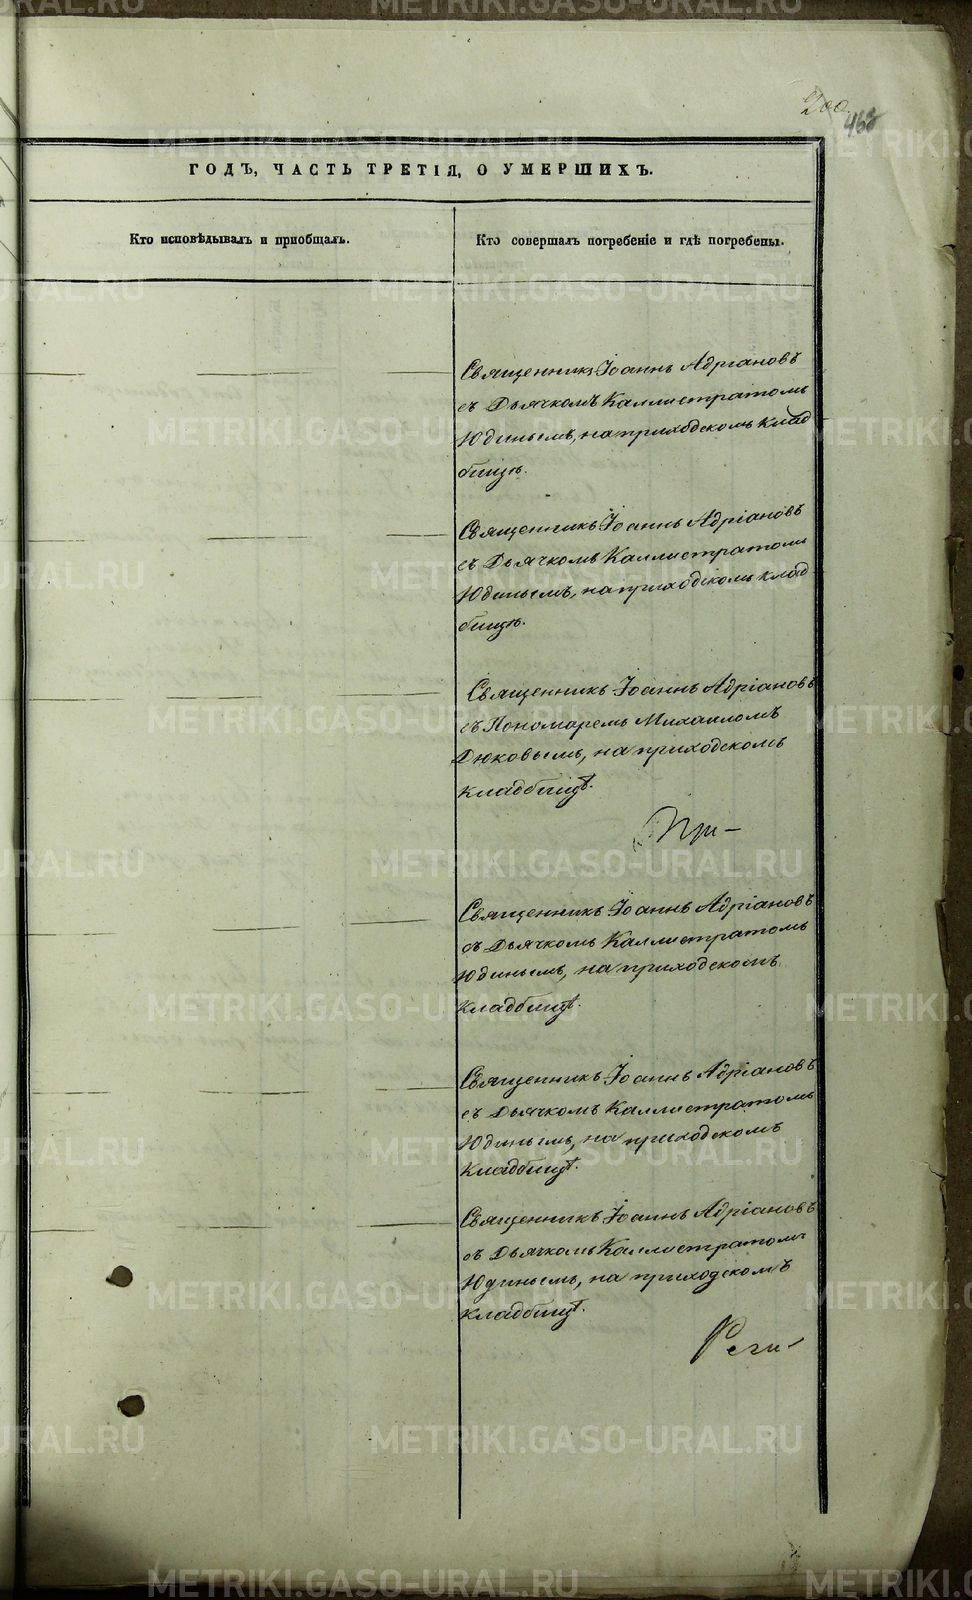 200
468
ГОДЪ, ЧАСТЬ ТРЕТІЯ, О УМЕРШИХЪ.
Кто исповѣдывалъ и пріобщалъ.
Кто совершалъ погребеніе и гдѣ погребены.
Священникъ Іоаннъ Адріановъ
съ Дьячкомъ Каллистратомъ
Юдинымъ, на приходскомъ клад
бищѣ.
Священникъ Іоаннъ Адріановъ
съ Дьячкомъ Каллистратомъ
Юдинымъ, на приходскомъ клад
бищѣ.
Священникъ Іоаннъ Адріановъ
съ Пономаремъ Михаиломъ
Дюковымъ, на приходскомъ
кладбищѣ.
При-
Священникъ Іоаннъ Адріановъ
съ Дьячкомъ Каллистратомъ
Юдинымъ, на приходскомъ
кладбищѣ.
Священникъ Іоаннъ Адріановъ
съ Дьячкомъ Каллистратомъ
Юдинымъ, на приходскомъ
кладбищѣ.
Священникъ Іоаннъ Адріановъ
съ Дьячкомъ Каллистратомъ
Юдинымъ, на приходскомъ
кладбищѣ.
METRIKI.GASO-URAL.RU